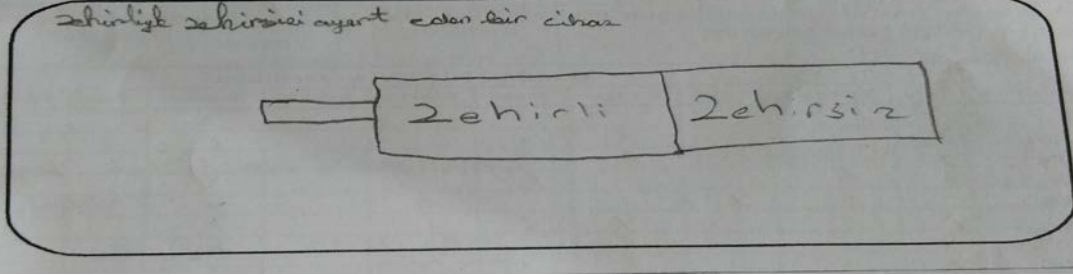 zehirliyle zehirsizi ayırt eden bir cihaz
Zehirli Zehirsiz